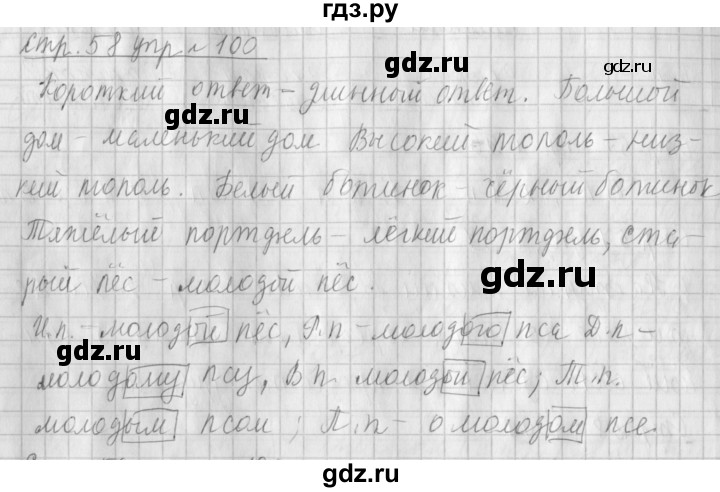 гдз.ру
стр. 58 упр № 100
Короткий ответ – длинный ответ. Большой
gdz.ru gdz.ru
дом – маленький дом Высокий тополь – низ-
кий тополь. Белый ботинок – чёрный ботинок
Тяжёлый портфель – лёгкий портфель, ста-
рый пёс – молодой пёс.
gdz.ru
И.п. – молодой пёс, Р.п – молодого пса Д.п –
молодому псу, В п. молодой пёс; Т.п.
молодым псом ; П.п – о молодом псе.
gdz.ru